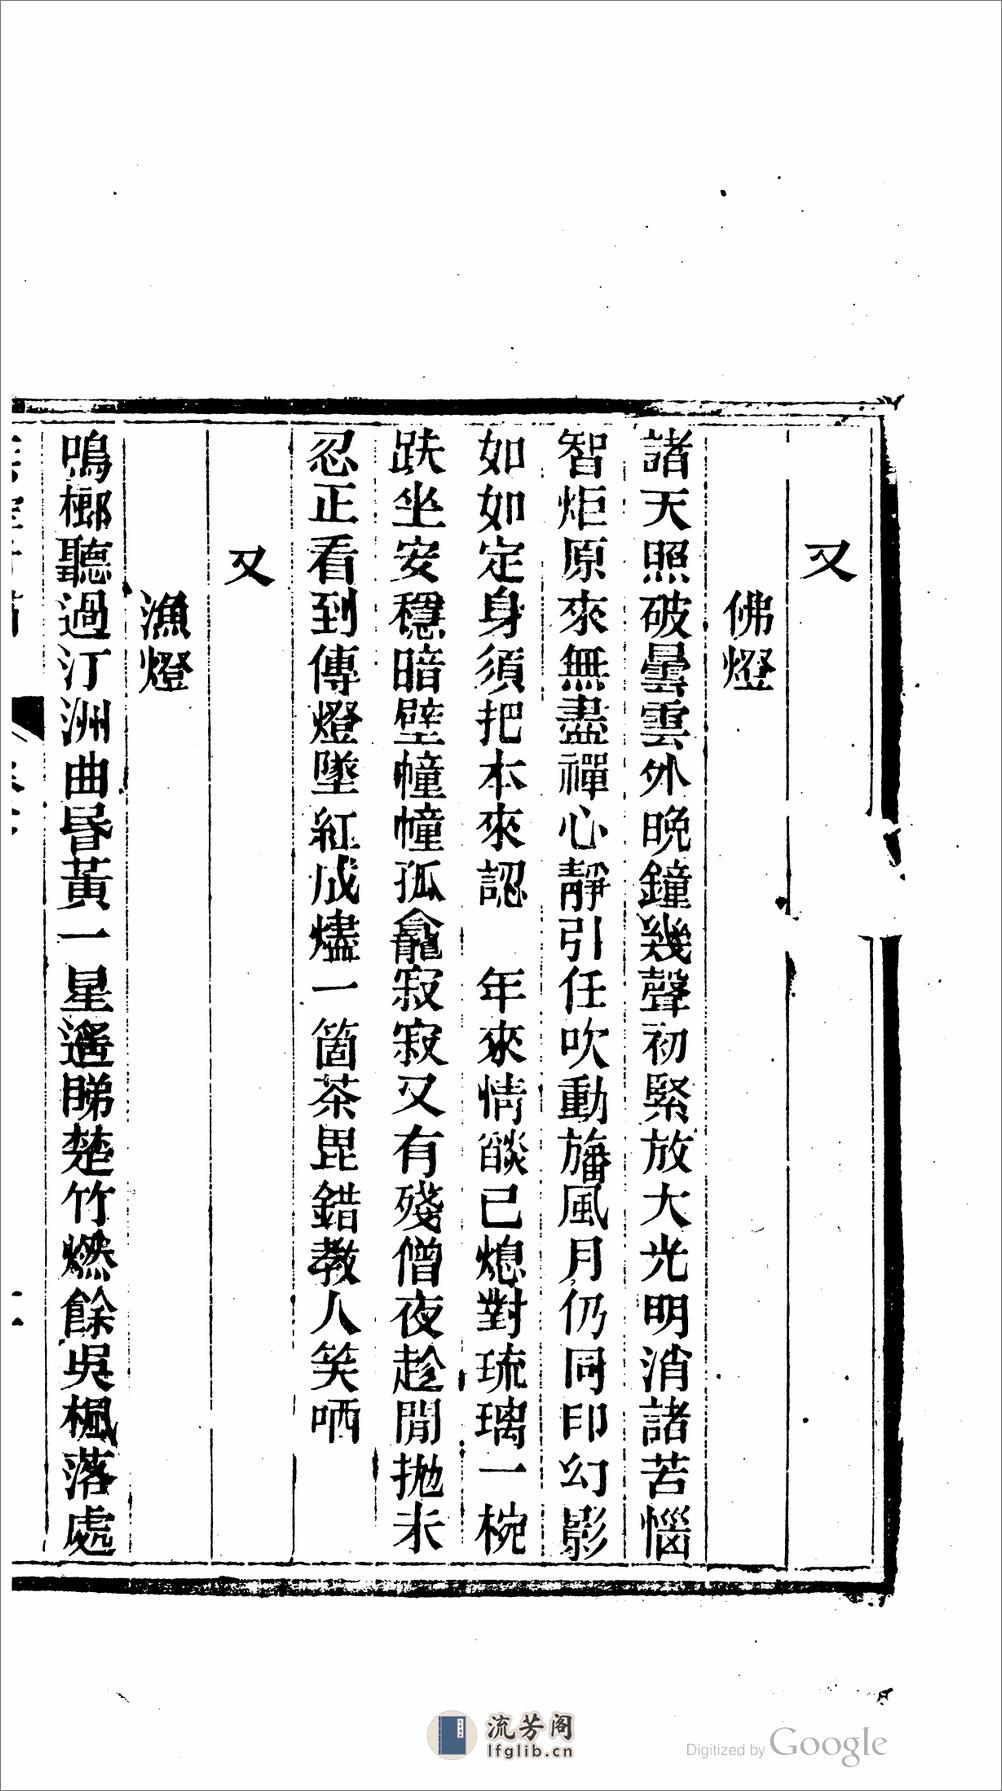 又
佛燈
諸天照破曇雲外晚鐘幾聲初緊放大光明消諸苦惱
智炬原來無盡禪心靜引任吹動旛風月仍同印幻影
如如定身須把本來認　年來情燄已熄對琉璃一椀
趺坐安穩暗壁幢幢孤龕寂寂又有殘僧夜趁閒拋未
忍正看到傳燈墜紅成燼一箇茶毘錯教人笑哂
又
漁燈
鳴榔聽過汀洲曲昏黃一星遙睇楚竹燃餘吳楓落處
流芳阁
lfglib.cn
Digitized by Google